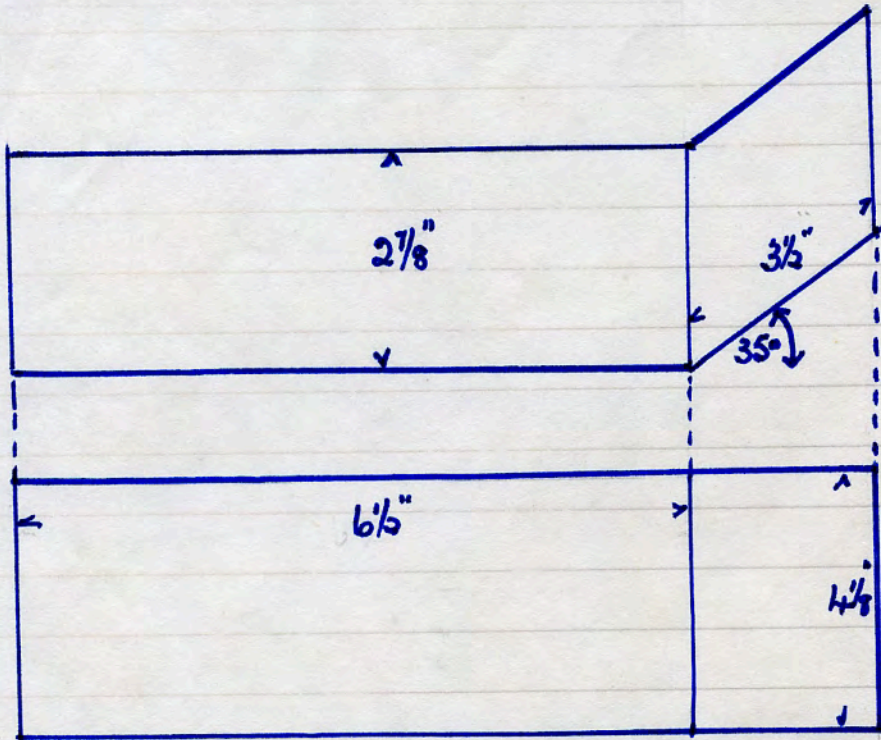 2 7/8"
3 1/2"
35°
6 1/2"
4 1/8"